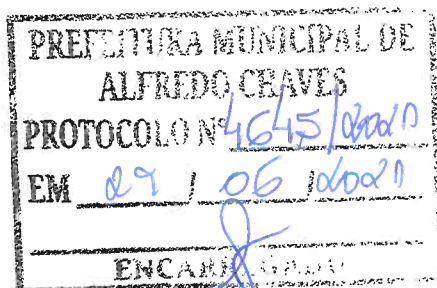 PREFEITURA MUNICIPAL DE
ALFREDO CHAVES
PROTOCOLO Nº 4645/2021
EM 29 / 06 /2021
ENCARREGADO